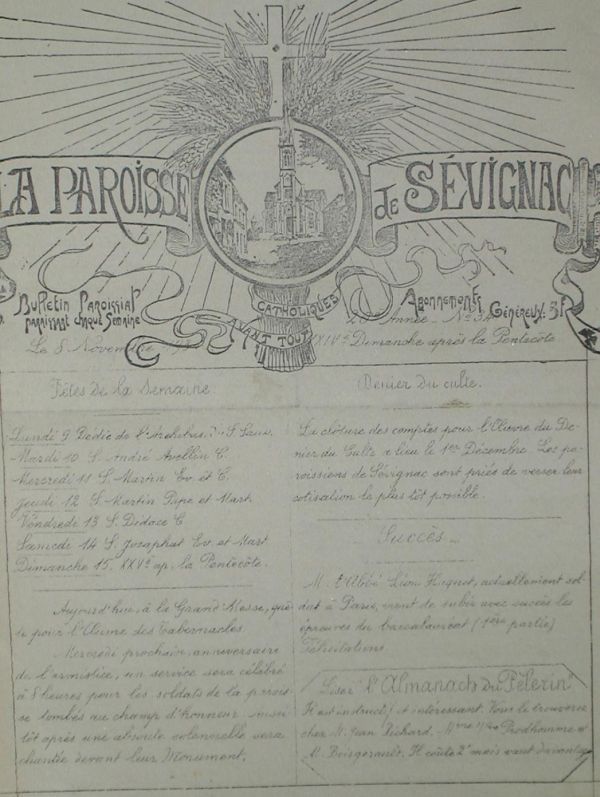 LA PAROISSE de SÉVIGNAC
CATHOLIQUES
AVANT TOUT
Bulletin Paroissial
paraissant chaque Semaine
Abonnements
Généreux: 3f
Le 8 Novembre
Année. No
XXIVe Dimanche après la Pentecôte
Fêtes de la Semaine
Lundi 9 Dédic de l'Archibas. du S. Sauv.
Mardi 10 S. André Avellin C.
Mercredi 11 S. Martin Ev. et C.
Jeudi 12 S. Martin Pape et Mart.
Vendredi 13 S. Didace C
Samedi 14 S. Josaphat Ev. et Mart
Dimanche 15. XXVe ap. la Pentecôte.
Aujourd'hui, à la Grand'Messe, quê-
te pour l'Œuvre des Tabernacles
Mercredi prochain, anniversaire
de l'armistice, un service sera célébré
à 8 heures pour les soldats de la parois-
se tombés au champ d'honneur. Aussi-
tôt après une absoute solennelle sera
chantée devant leur Monument.
Denier du culte.
La clôture des comptes pour l'Œuvre du De-
nier du Culte a lieu le 1er Décembre. Les pa-
roissiens de Sévignac sont priés de verser leur
cotisation le plus tôt possible.
Succès
M. l'Abbé Léon Huguet, actuellement sol-
dat à Paris, vient de subir avec succès les
épreuves du baccalauréat (1ère partie)
Félicitations
Lisez "l'Almanach du Pèlerin"
Il est instructif et intéressant. Vous le trouverez
chez M. Jean Richard. Mme Prodhomme et
M. Boisgerault. Il coûte 2f mais vaut davantage